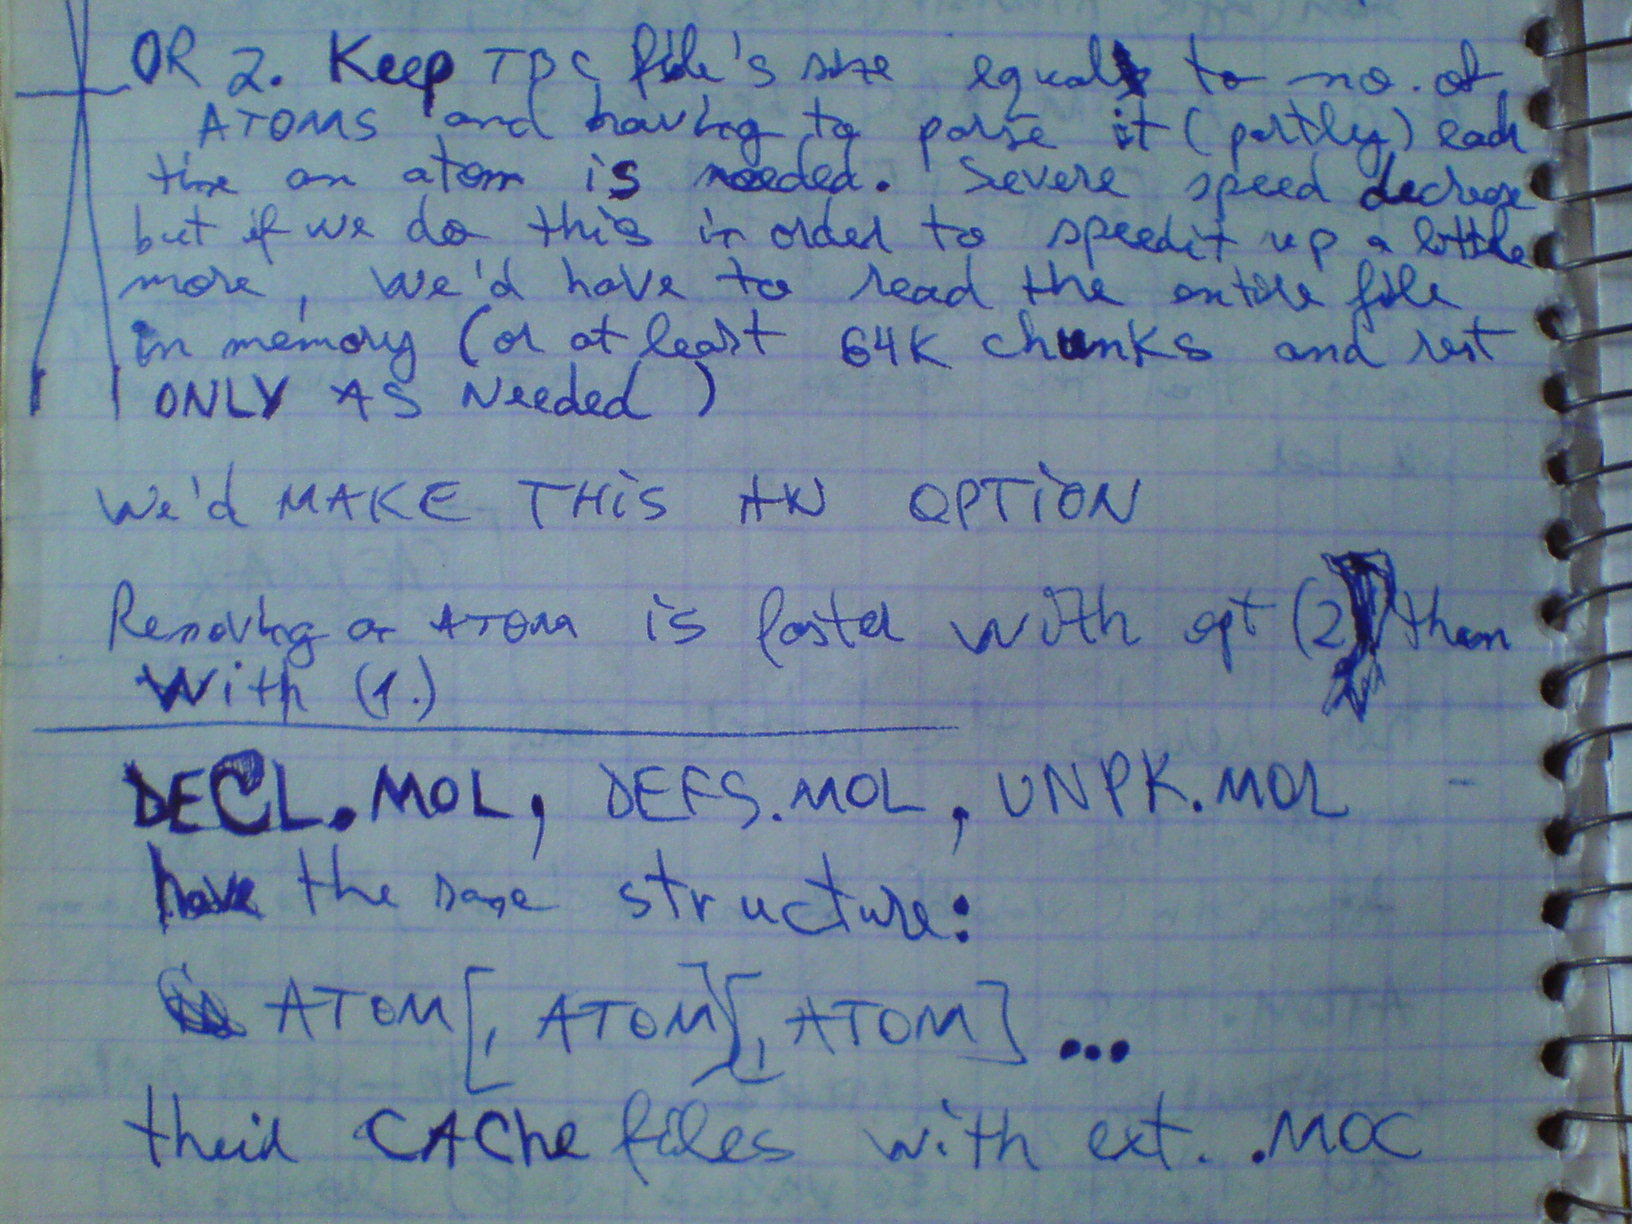 OR 2. Keep TBC file's size equal to no. of
ATOMS and having to parse it (partly) each
time an atom is needed. Severe speed decrease
but if we do this in order to speed it up a little
more, we'd have to read the entire file
in memory (or at least 64K chunks and rest
ONLY AS Needed)
We'd MAKE THiS AN OPTiON
Removing an ATOM is faster with opt (2) than
With (1.)
DECL.MOL, DEFS.MOL, UNPK.MOL
have the same structure:
ATOM[, ATOM][, ATOM]...
their CAChe files with ext. .MOC